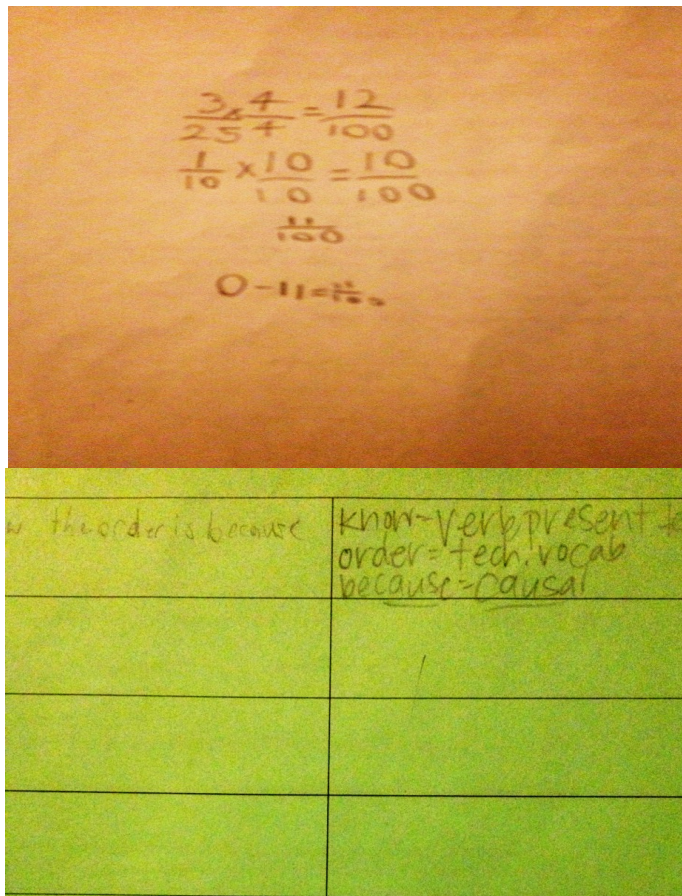 3/25 x 4/4 = 12/100
1/10 x 10/10 = 10/100
11/100
0-11=11/100
the order is because
know=Verb, present
order=tech. vocab
because=causal